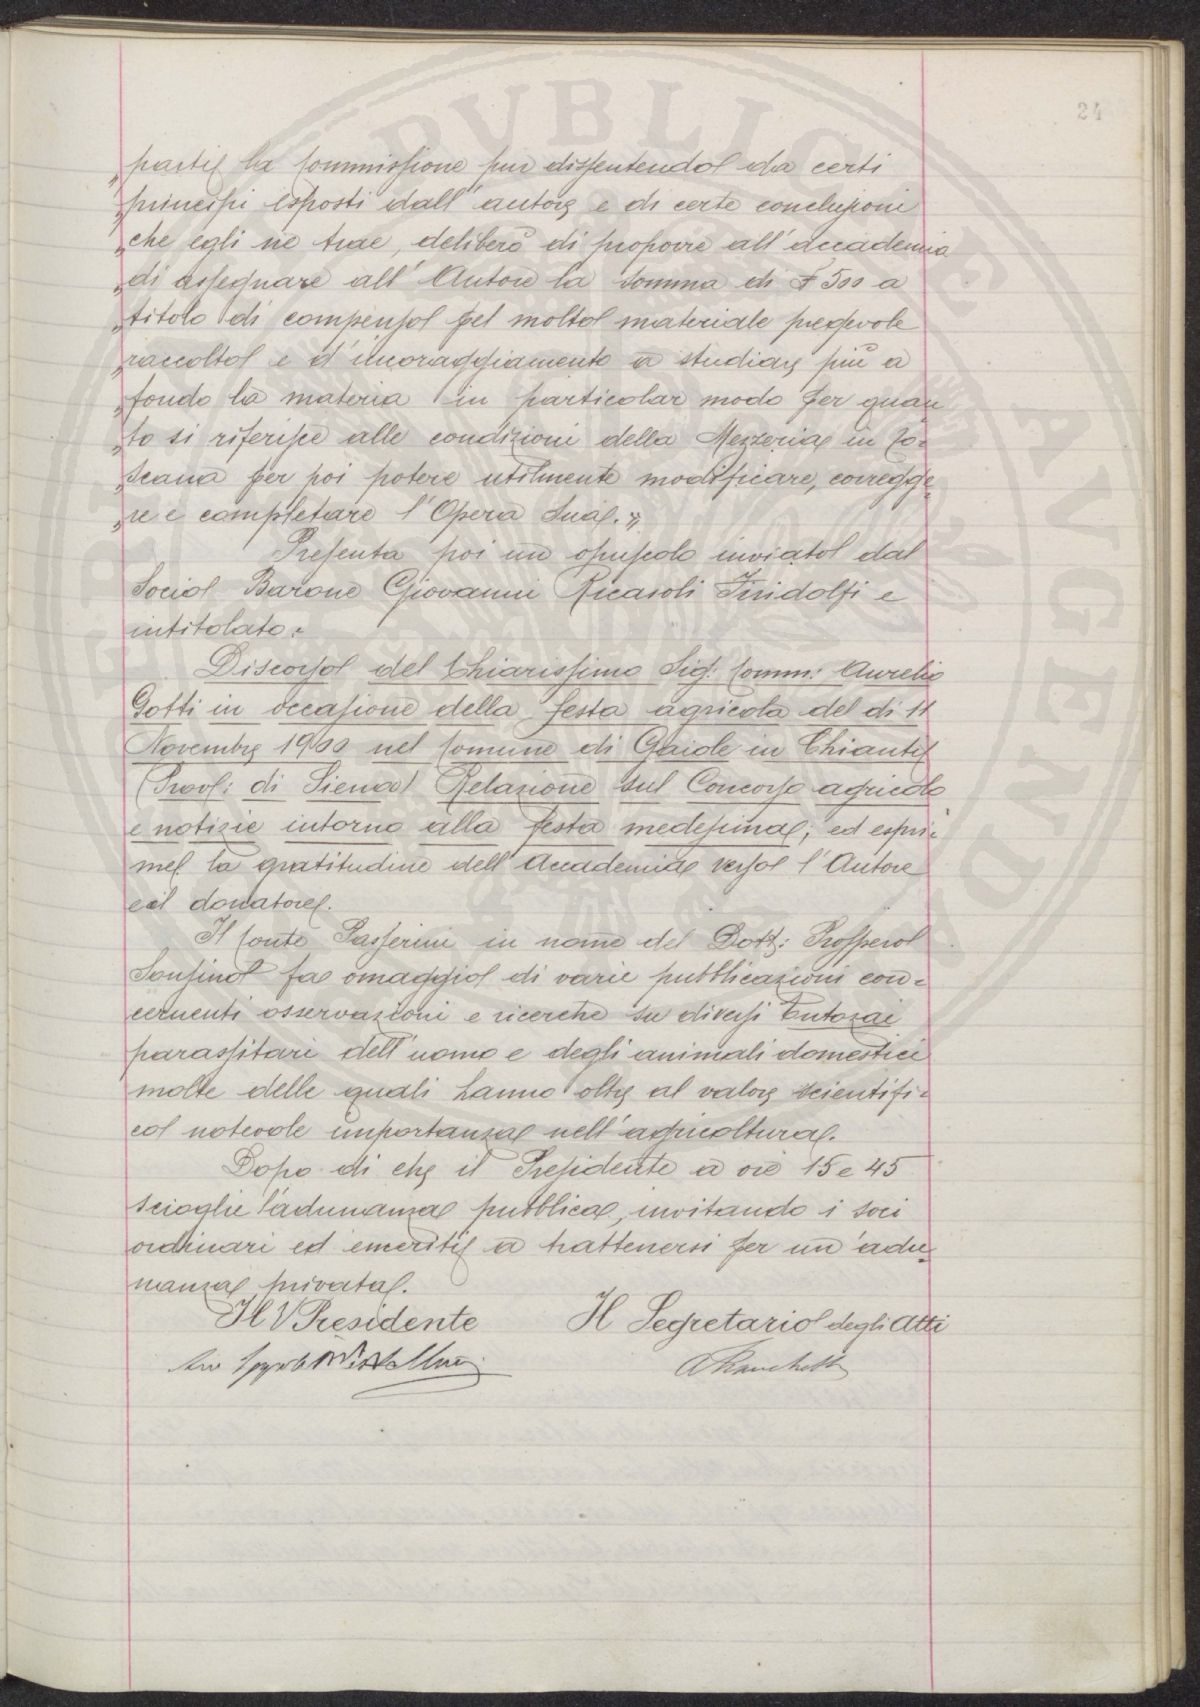 24
„parti la Commissione pur dissentendo da certi
„principi esposti dall'autore e di certe conclusioni
„che egli ne trae, deliberò di proporre all'accademia
„di assegnare all'Autore la somma di £ 500 a
„titolo di compenso pel molto materiale pregevole
„raccolto e d'incoraggiamento a studiare più a
„fondo la materia in particolar modo per quan
„to si riferisce alle condizioni della Mezzeria in To=
„scana per poi potere utilmente modificare, corregge
„re e completare l'Opera Sua.„
Presenta poi un opuscolo inviato dal
Socio Barone Giovanni Ricasoli Firidolfi e
intitolato:
Discorso del Chiarissimo Sig: Comm: Aurelio
Gotti in occasione della festa agricola del dì 11
Novembre 1900 nel Comune di Gaiole in Chianti
(Prov: di Siena) Relazione sul Concorso agricolo
e notizie intorno alla festa medesima; ed espri=
me la gratitudine dell'Accademia verso l'Autore
e il donatore.
Il Conte Passerini in nome del Dott: Prospero
Sonsino fa omaggio di varie pubblicazioni con=
cernenti osservazioni e ricerche su diversi Entozoi
parassitari dell'uomo e degli animali domestici
molte delle quali hanno oltre al valore scientifi=
co notevole importanza nell'agricoltura.
Dopo di che il Presidente a ore 15 e 45
scioglie l'adunanza pubblica, invitando i soci
ordinari ed emeriti a trattenersi per un'adu=
nanza privata.
Il V Presidente Il Segretario degli Atti